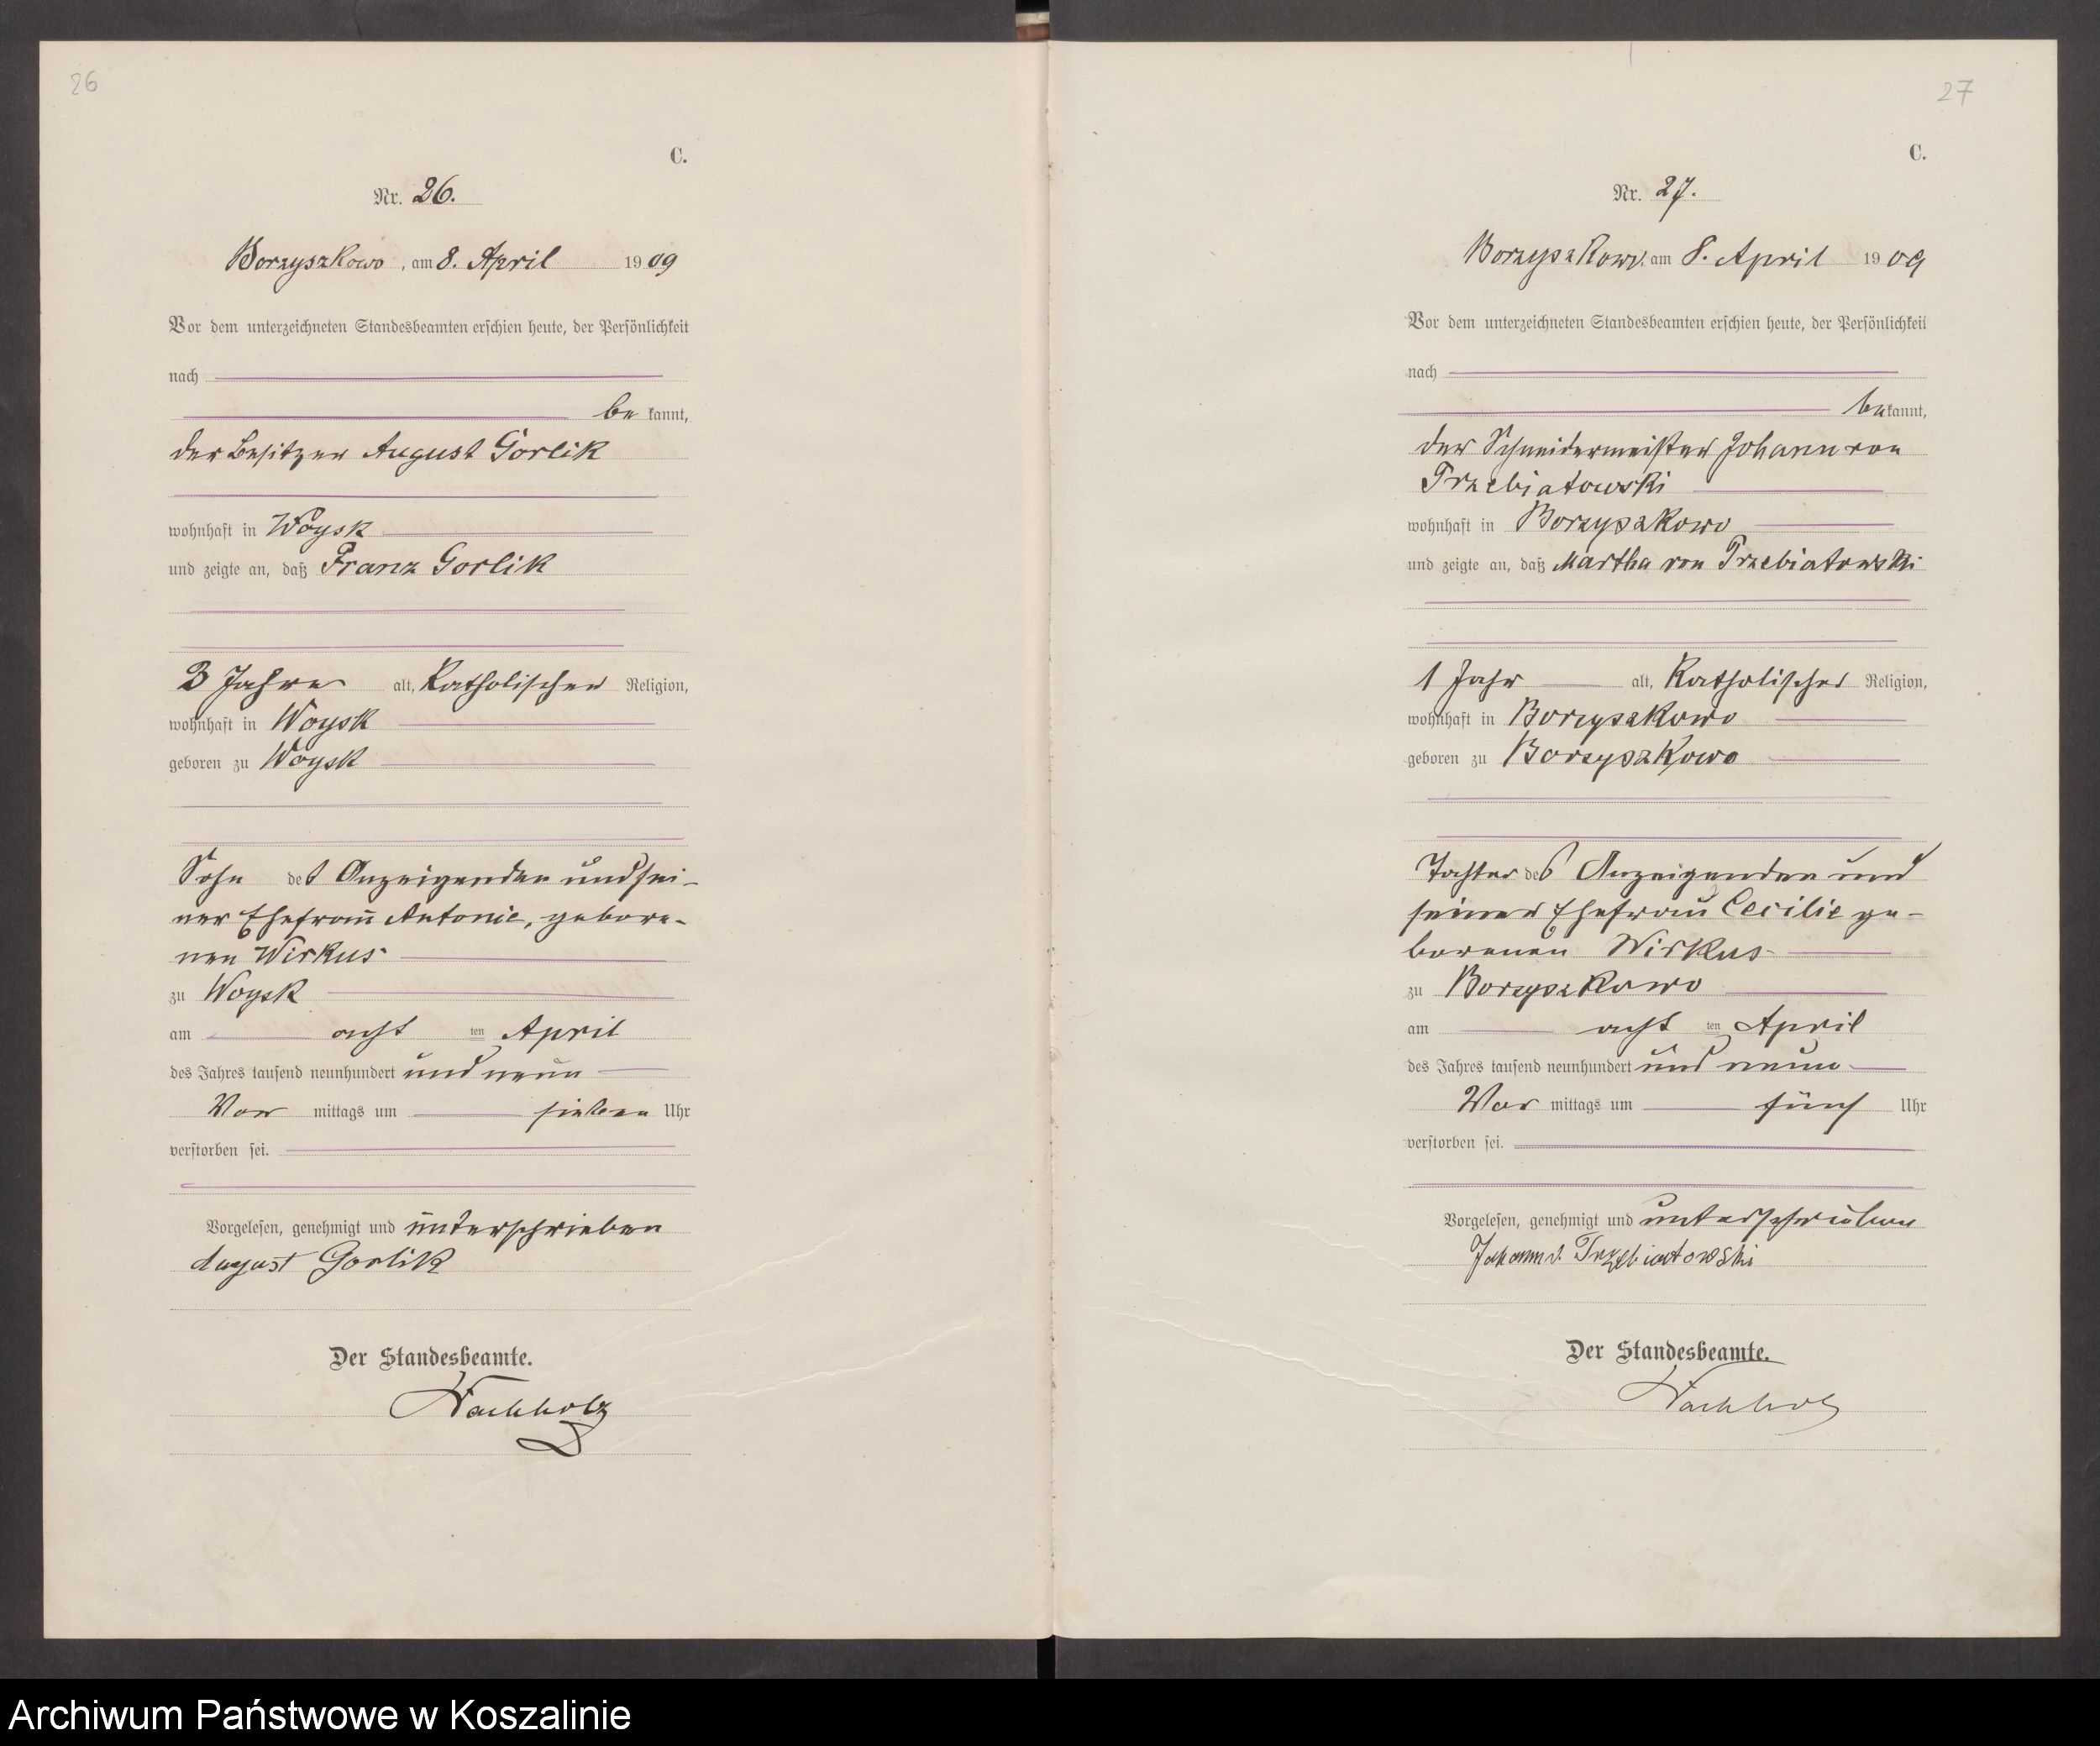 26
C.
Nr. 26.
Borzyszkowo, am 8. April 1909
Vor dem unterzeichneten Standesbeamten erschien heute, der Persönlichkeit
nach
be kannt,
der Besitzer August Gorlik
wohnhaft in Woysk
und zeigte an, daß Franz Gorlik
3 Jahre alt, Katholischer Religion,
wohnhaft in Woysk
geboren zu Woysk
Sohn des Anzeigenden und sei-
ner Ehefrau Antonie, gebore-
nen Wirkus
zu Woysk
am acht ten April
des Jahres tausend neunhundert und neun
Vor mittags um sieben Uhr
verstorben sei.
Vorgelesen, genehmigt und unterschrieben
August Gorlik
Der Standesbeamte.
Wachholz
27
C.
Nr. 27.
Borzyszkowo, am 8. April 1909
Vor dem unterzeichneten Standesbeamten erschien heute, der Persönlichkeit
nach
bekannt,
der Schneidermeister Johann von
Trzebiatowski
wohnhaft in Borzyszkowo
und zeigte an, daß Martha von Trzebiatowski
1 Jahr alt, Katholischer Religion,
wohnhaft in Borzyszkowo
geboren zu Borzyszkowo
Tochter des Anzeigenden und
seiner Ehefrau Cecilie ge-
borenen Wirkus
zu Borzyszkowo
am acht ten April
des Jahres tausend neunhundert und neun
Vor mittags um fünf Uhr
verstorben sei.
Vorgelesen, genehmigt und unterschrieben
Johann v. Trzebiatowski
Der Standesbeamte.
Wachholz
Archiwum Państwowe w Koszalinie